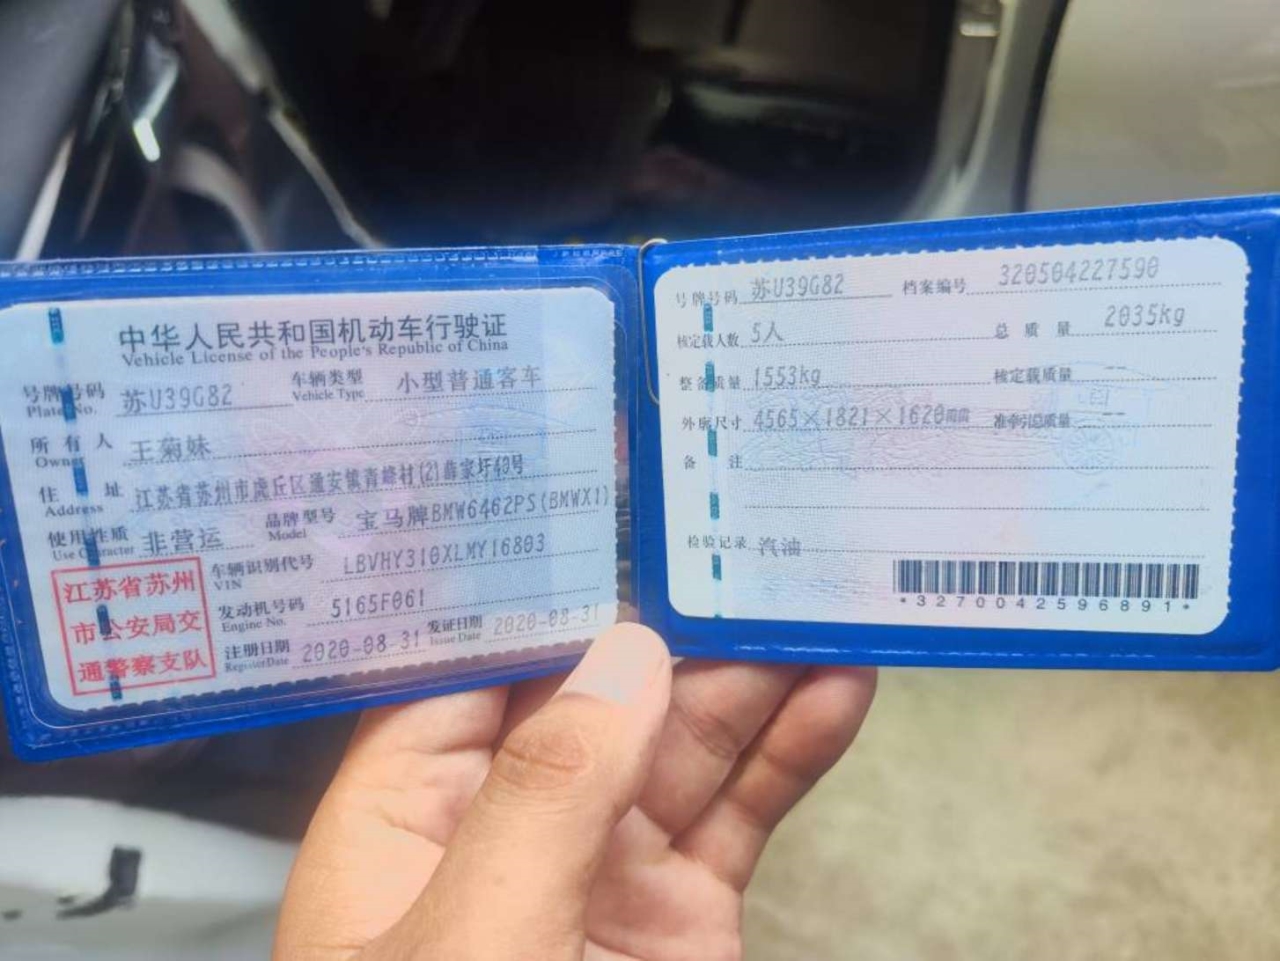 中华人民共和国机动车行驶证
Vehicle License of the People's Republic of China
号牌号码 苏U39G82 车辆类型 小型普通客车
Plate No. Vehicle Type
所有人 王菊妹
Owner
住址 江苏省苏州市虎丘区通安镇青峰村(2)薛家圩40号
Address
使用性质 非营运 品牌型号 宝马牌BMW6462PS(BMWX1)
Use Character Model
江苏省苏州
市公安局交
通警察支队
车辆识别代号 LBVHY310XLMY16803
VIN
发动机号码 5165F061
Engine No.
注册日期 2020-08-31 发证日期 2020-08-31
Register Date Issue Date
号牌号码 苏U39G82 档案编号 320504227590
核定载人数 5人 总质量 2035kg
整备质量 1553kg 核定载质量 --
外廓尺寸 4565×1821×1620mm 准牵引总质量 --
备注
检验记录 汽油
*3270042596891*